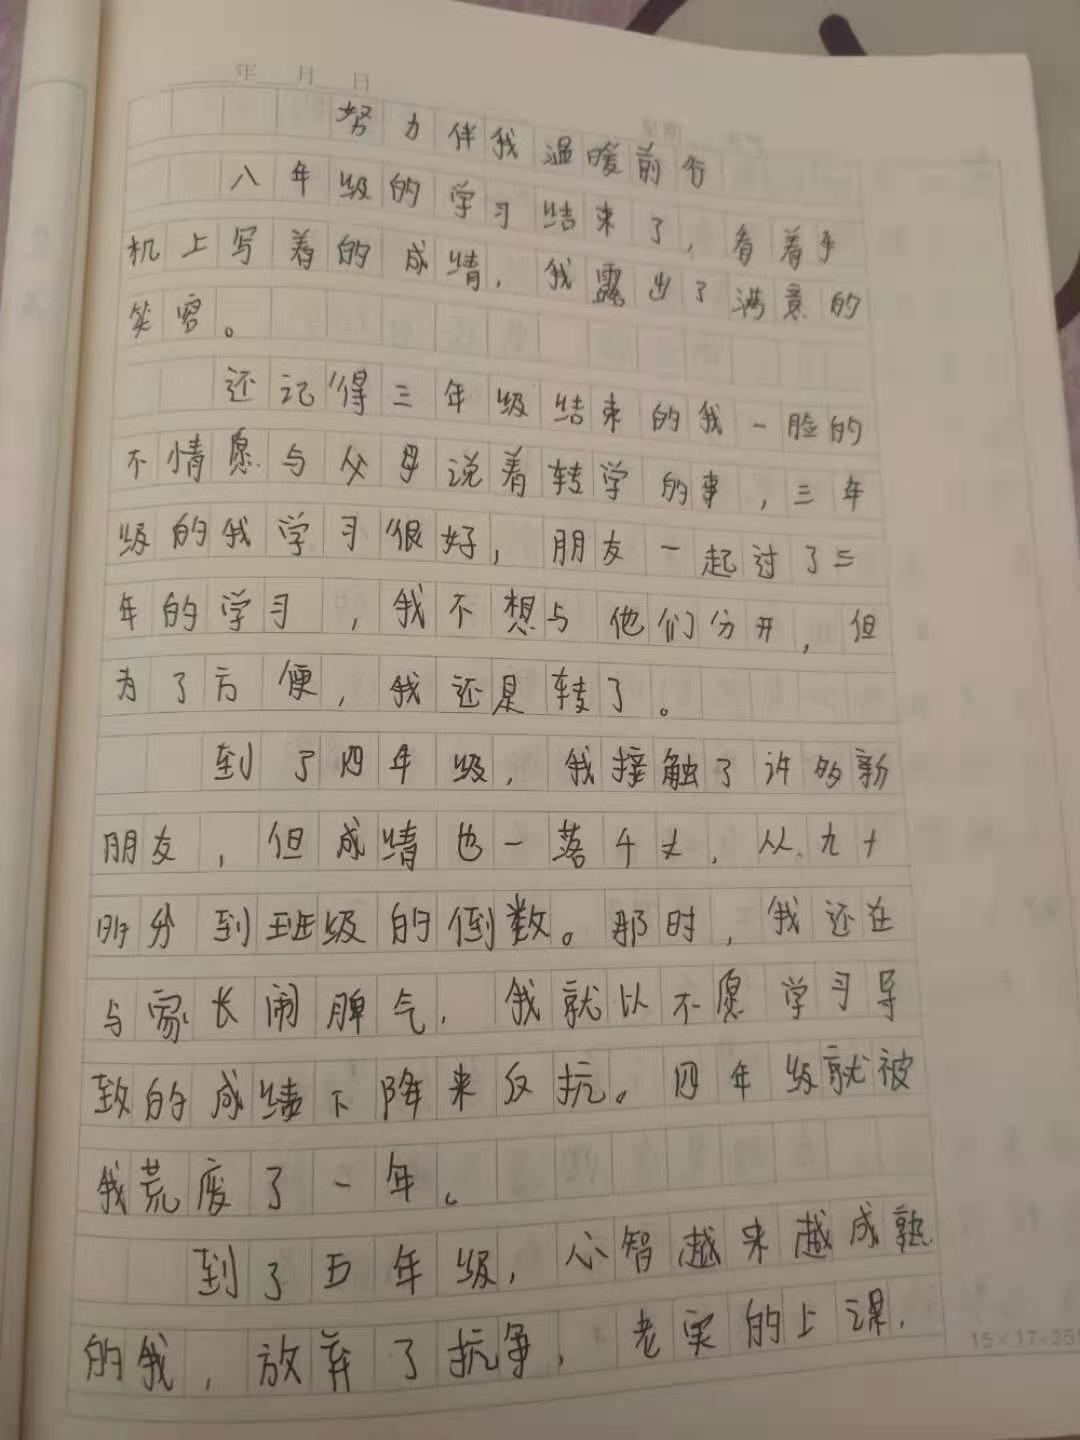 年 月 日
努力伴我温暖前行
八年级的学习结束了，看着手
机上写着的成绩，我露出了满意的
笑容。
还记得三年级结束的我一脸的
不情愿与父母说着转学的事，三年
级的我学习很好，朋友一起过了三
年的学习，我不想与他们分开，但
为了方便，我还是转了。
到了四年级，我接触了许多新
朋友，但成绩也一落千丈，从九十
所分到班级的倒数。那时，我还在
与家长闹脾气，我就以不愿学习导
致的成绩下降来反抗。四年级就被
我荒废了一年。
到了五年级，心智越来越成熟
的我，放弃了抗争，老实的上课，
15×17=255